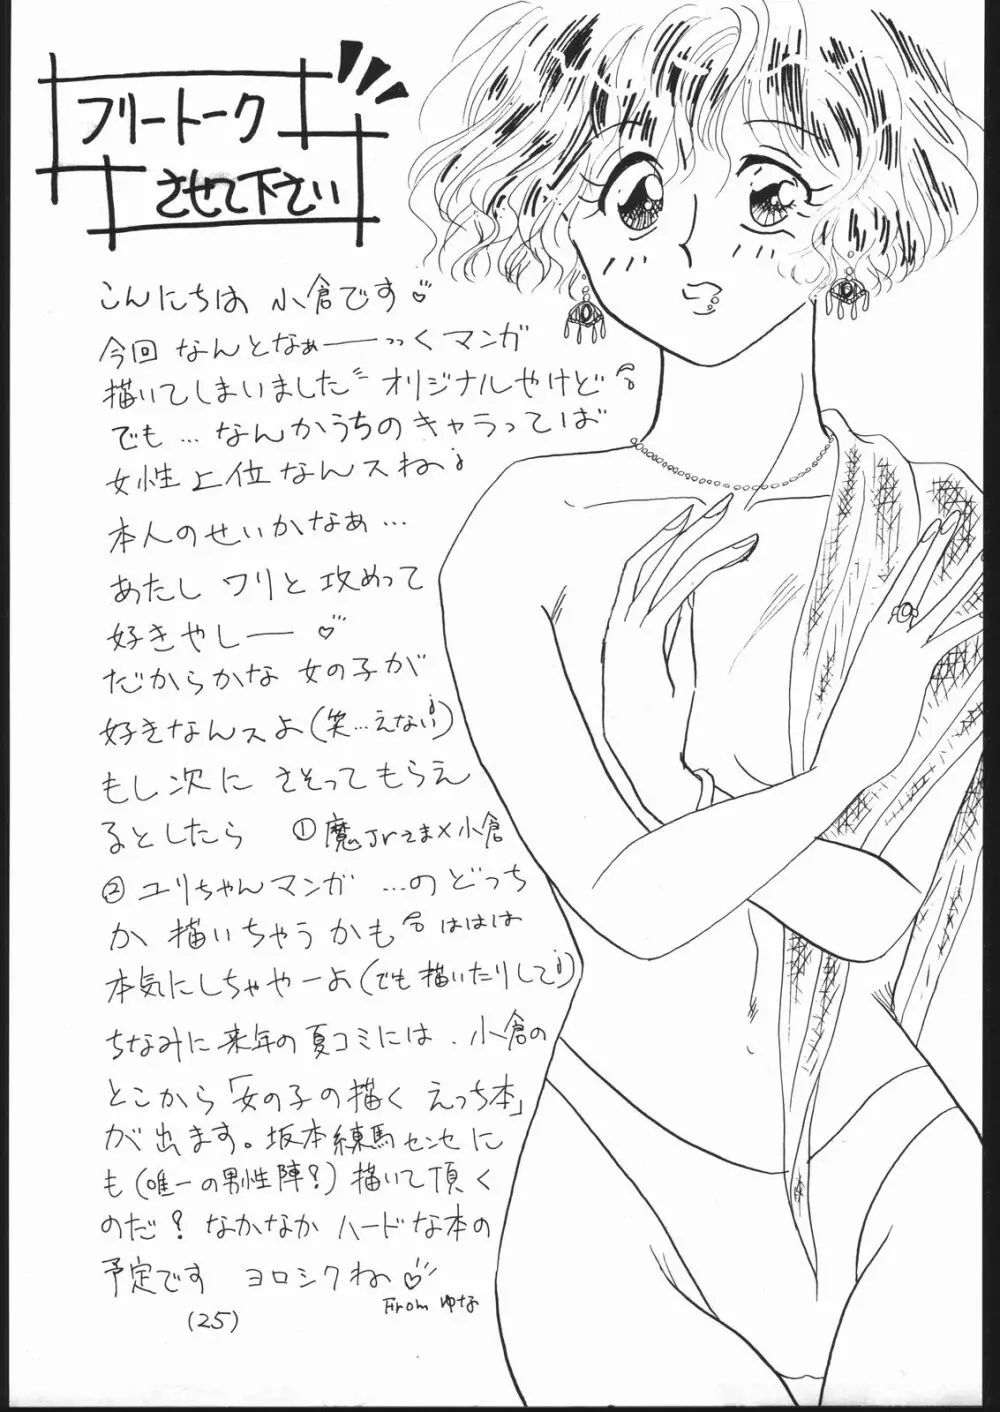 フリートーク
させて下さい
こんにちは 小倉です♡
今回 なんとなぁーーっっくマンガ
描いてしまいました オリジナルやけど
でも…なんかうちのキャラってば
女性上位なんスね
本人のせいかなぁ…
あたし ワリと 攻めって
好きやしー ♡
だからかな 女の子が
好きなんスよ(笑…えない)
もし次に さそってもらえ
るとしたら ①魔Jrさま×小倉
②ユリちゃんマンガ …のどっち
か 描いちゃうかも ははは
本気にしちゃやーよ(でも描いたりして)
ちなみに来年の夏コミには、小倉の
とこから「女の子の描く えっち本」
が出ます。坂本練馬センセに
も(唯一の男性陣?)描いて頂く
のだ? なかなか ハードな本の
予定です ヨロシクね♡
From ゆな
(25)